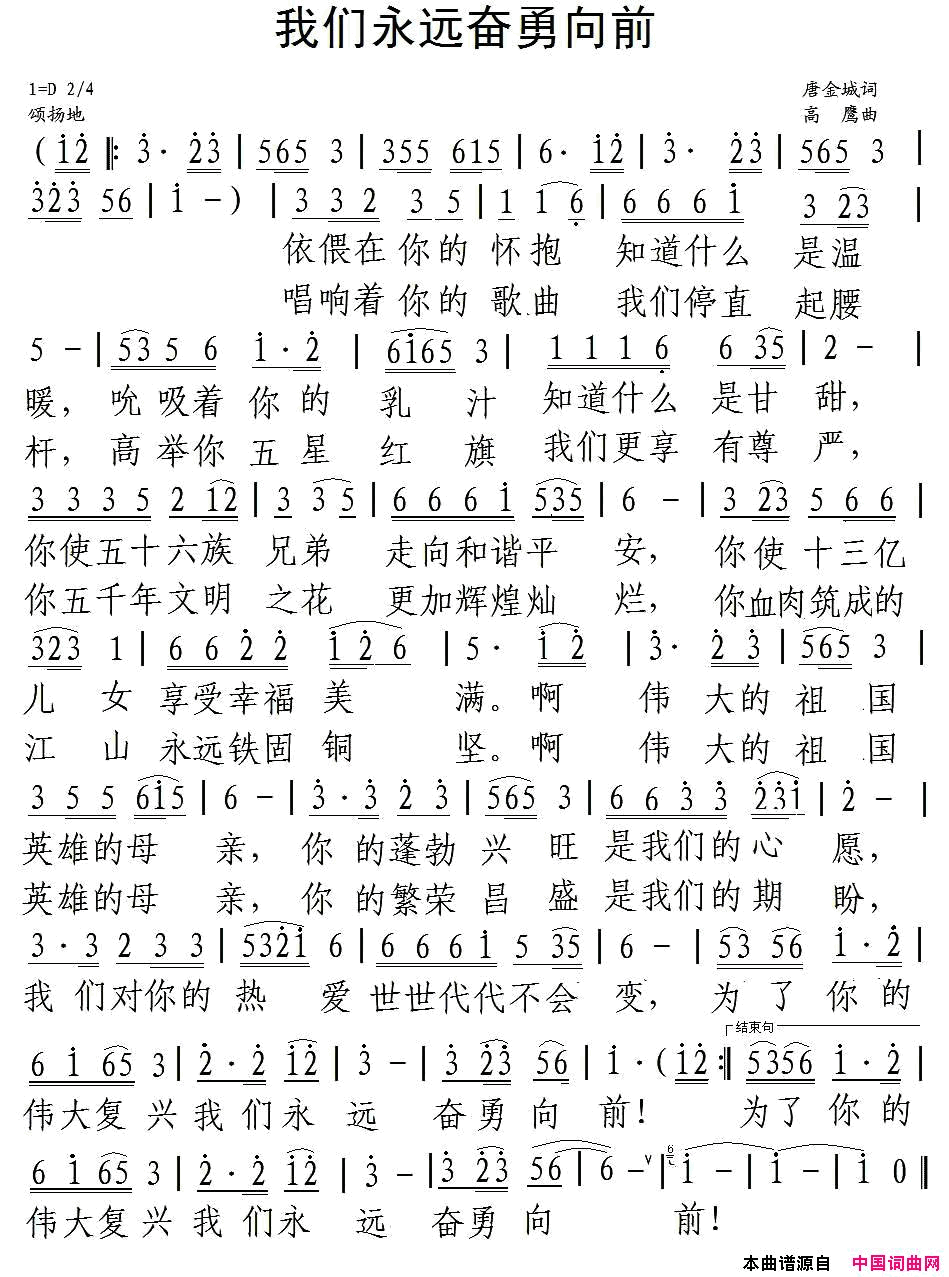 我们永远奋勇向前
1=D 2/4 唐金城词
颂扬地 高 鹰曲
(1 2 ‖: 3· 2 3 | 5 6 5 3 | 3 5 5 6 1 5 | 6· 1 2 | 3· 2 3 | 5 6 5 3 |
3 2 3 5 6 | 1 - ) | 3 3 2 3 5 | 1 1 6 | 6 6 6 1 3 2 3 |
依偎在你的 怀抱 知道什么 是温
唱响着你的 歌曲 我们停直 起腰
5 - | 5 3 5 6 1· 2 | 6 1 6 5 3 | 1 1 1 6 6 3 5 | 2 - |
暖, 吮吸着 你的 乳 汁 知道什么 是甘 甜,
杆, 高举你 五星 红 旗 我们更享 有尊 严,
3 3 3 5 2 1 2 | 3 3 3 5 | 6 6 6 1 5 3 5 | 6 - | 3 2 3 5 6 6 |
你使五十六族 兄弟 走向和谐平 安, 你使 十三亿
你五千年文明 之花 更加辉煌灿 烂, 你血肉筑成的
3 2 3 1 | 6 6 2 2 1 2 6 | 5· 1 2 | 3· 2 3 | 5 6 5 3 |
儿 女 享受幸福 美 满。啊 伟 大的 祖 国
江 山 永远铁固 铜 坚。啊 伟 大的 祖 国
3 5 5 6 1 5 | 6 - | 3· 3 2 3 | 5 6 5 3 | 6 6 3 3 2 3 1 | 2 - |
英雄的母 亲, 你 的蓬勃 兴 旺 是我们的心 愿,
英雄的母 亲, 你 的繁荣 昌 盛 是我们的期 盼,
3· 3 2 3 3 | 5 3 2 1 6 | 6 6 6 1 5 3 5 | 6 - | 5 3 5 6 1· 2 |
我 们对你的 热 爱 世世代代不会 变, 为 了 你 的
结束句
6 1 6 5 3 | 2· 2 1 2 | 3 - | 3 2 3 5 6 | 1· (1 2 :‖ 5 3 5 6 1· 2 |
伟大复 兴 我 们永 远 奋勇 向 前! 为了 你 的
6 1 6 5 3 | 2· 2 1 2 | 3 - | 3 2 3 5 6 | 6 - ∨ | 6 1 - | 1 - | 1 0 ‖
伟大复 兴 我 们永 远 奋勇 向 前!
本曲谱源自 中国词曲网